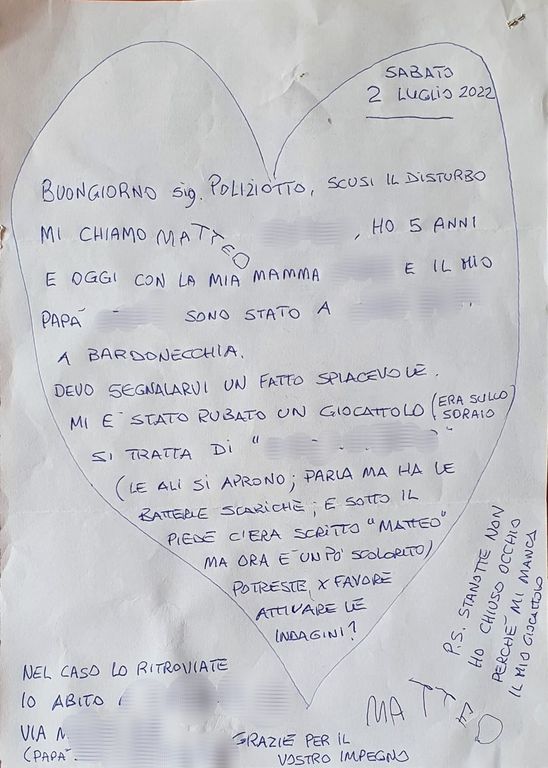 SABATO
2 LUGLIO 2022
BUONGIORNO sig. POLIZIOTTO, SCUSI IL DISTURBO
MI CHIAMO MATTEO , HO 5 ANNI
E OGGI CON LA MIA MAMMA E IL MIO
PAPA' SONO STATO A
A BARDONECCHIA.
DEVO SEGNALARVI UN FATTO SPIACEVOLE.
MI E' STATO RUBATO UN GIOCATTOLO (ERA SULLO
SDRAIO)
SI TRATTA DI " "
(LE ALI SI APRONO; PARLA MA HA LE
BATTERIE SCARICHE; E SOTTO IL
PIEDE C'ERA SCRITTO "MATTEO"
MA ORA E' UN PO' SCOLORITO)
POTRESTE, X FAVORE
ATTIVARE LE
INDAGINI?
P.S. STANOTTE NON
HO CHIUSO OCCHIO
PERCHE' MI MANCA
IL MIO GIOCATTOLO
NEL CASO LO RITROVIATE
IO ABITO
VIA
(PAPA'
MATTEO
GRAZIE PER IL
VOSTRO IMPEGNO